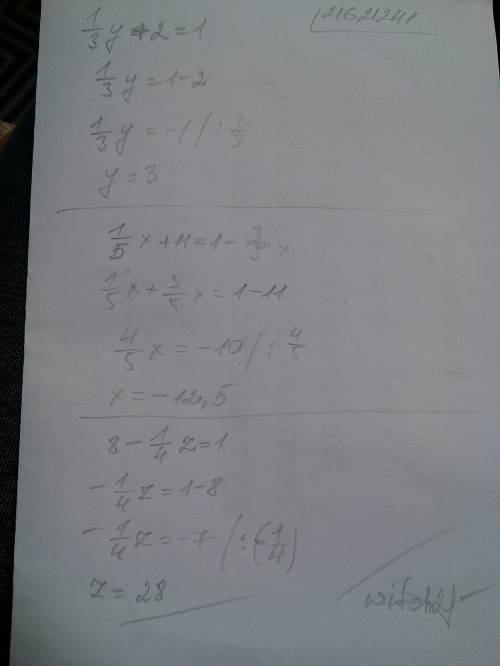 1/3 y + 2 = 1
1/3 y = 1 - 2
1/3 y = -1 / : 1/3
y = 3
1/5 x + 11 = 1 - 3/5 x
1/5 x + 3/5 x = 1 - 11
4/5 x = -10 / : 4/5
x = -12,5
8 - 1/4 z = 1
- 1/4 z = 1 - 8
- 1/4 z = -7 / : (- 1/4)
z = 28